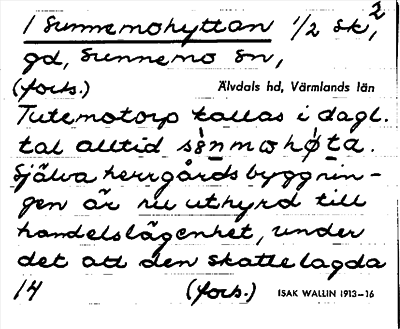 1 Sunnemohyttan 1/2 sk, 2
gd, Sunnemo sn,
(forts.) Älvdals hd, Värmlands län
Tutemotorp kallas i dagl.
tal alltid sènmohø̀ta.
Själva herrgårdsbyggnin-
gen är nu uthyrd till
handelslägenhet, under
det att den skattelagda
14 (forts.) ISAK WALLIN 1913–16